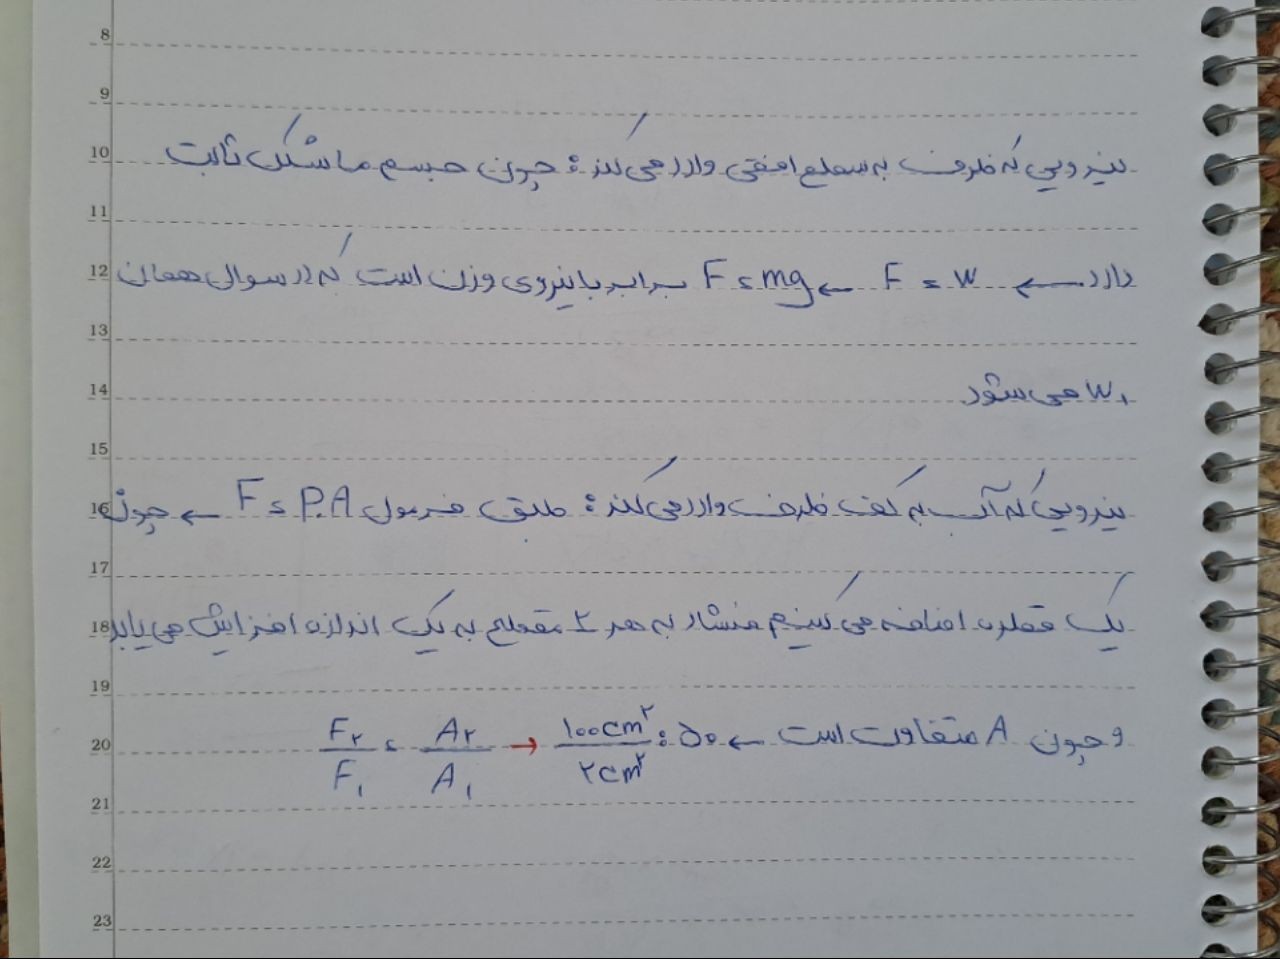 8
9
10 نیرویی که ظرف به سطح افقی وارد می‌کند : چون جسم ما شکل ثابت
11
12 دارد ← F = W ← F = mg برابر با نیروی وزن است که در سوال همان
13
14 W₁ می‌شود
15
16 نیرویی که آب به کف ظرف وارد می‌کند : طبق فرمول F = P.A ← چون
17
18 یک قطره اضافه می‌کنیم فشار به هر ۲ مقطع به یک اندازه افزایش می‌یابد
19
20 و چون A متفاوت است ← F۲/F۱ = A۲/A۱ → ۱۰۰cm²/۲cm² = ۵۰
21
22
23